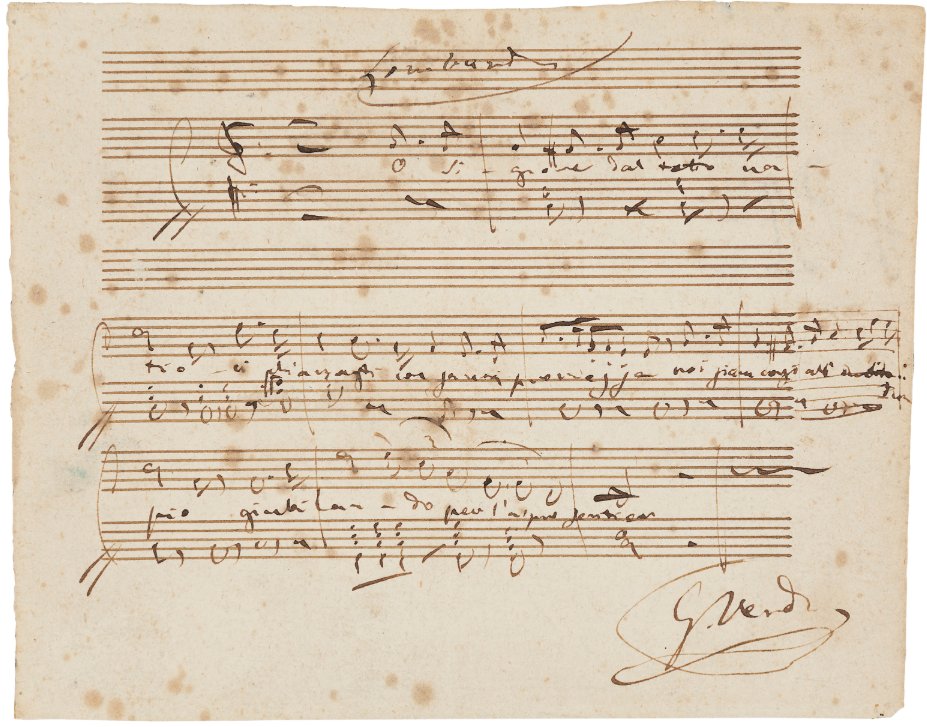 Lombardi
O Si - gnore dal tetto na -
tio ci chiamasti con santa promessa noi siam corsi all' invito d'un
pio giubilan - do per l'aspro sentier
G. Verdi